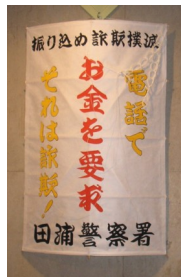 振り込め詐欺撲滅
電話で
お金を要求
それは詐欺!
田浦警察署